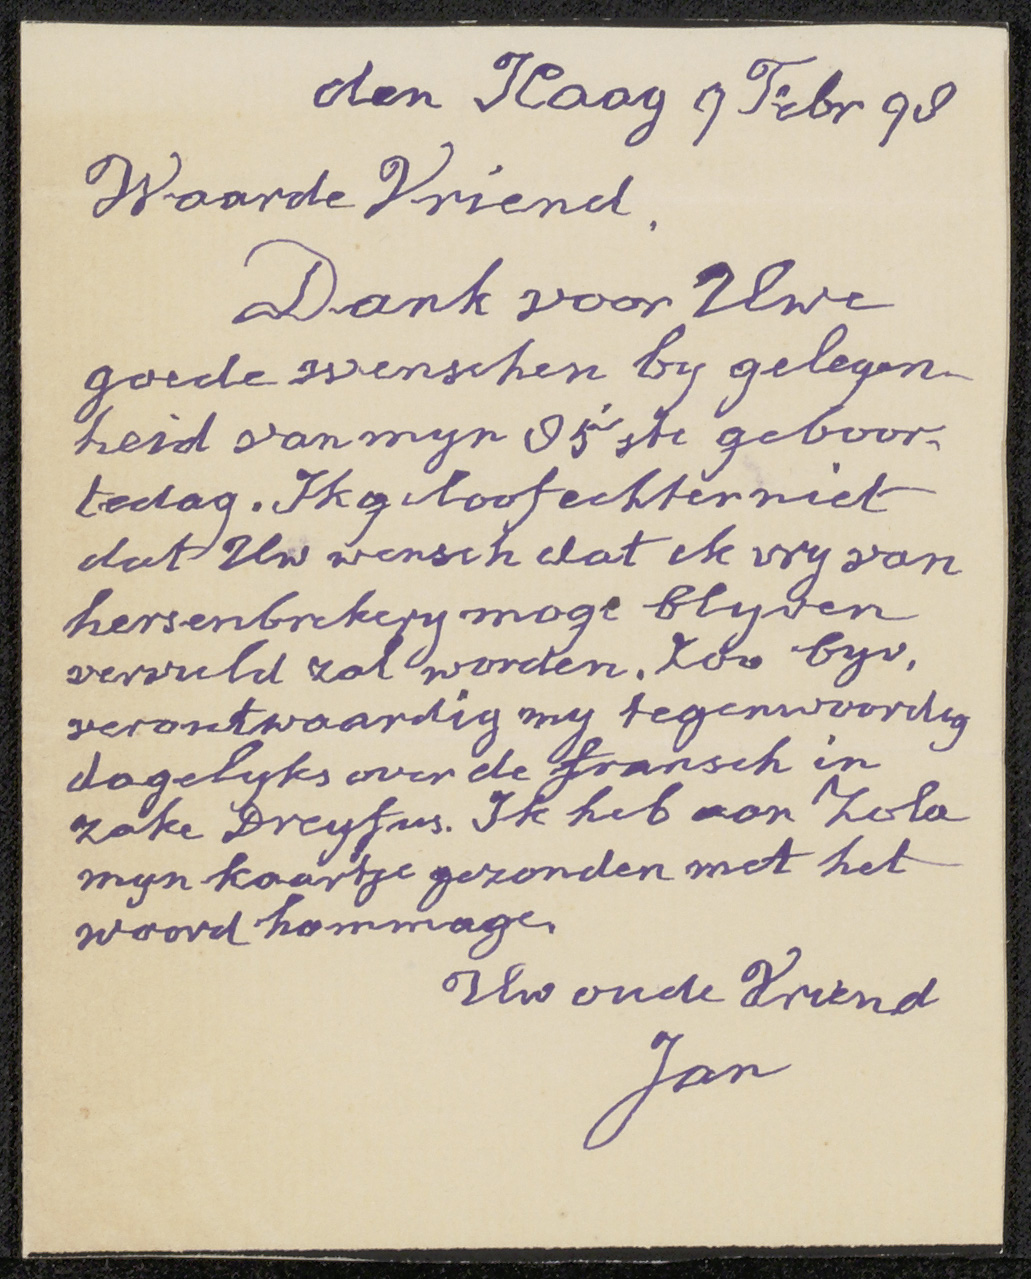 den Haag 9 Febr 98
Waarde Vriend,
Dank voor Uwe
goede wenschen by gelegen-
heid van myn 85ste geboor-
tedag. Ik geloof echter niet
dat Uw wensch dat ik vry van
hersenbrekery moge blyven
vervuld zal worden. Zoo byv.
verontwaardig my tegenwoordig
dagelyks over de fransch in
zake Dreyfus. Ik heb aan Zola
myn kaartje gezonden met het
woord hommage.
Uw oude Vriend
Jan